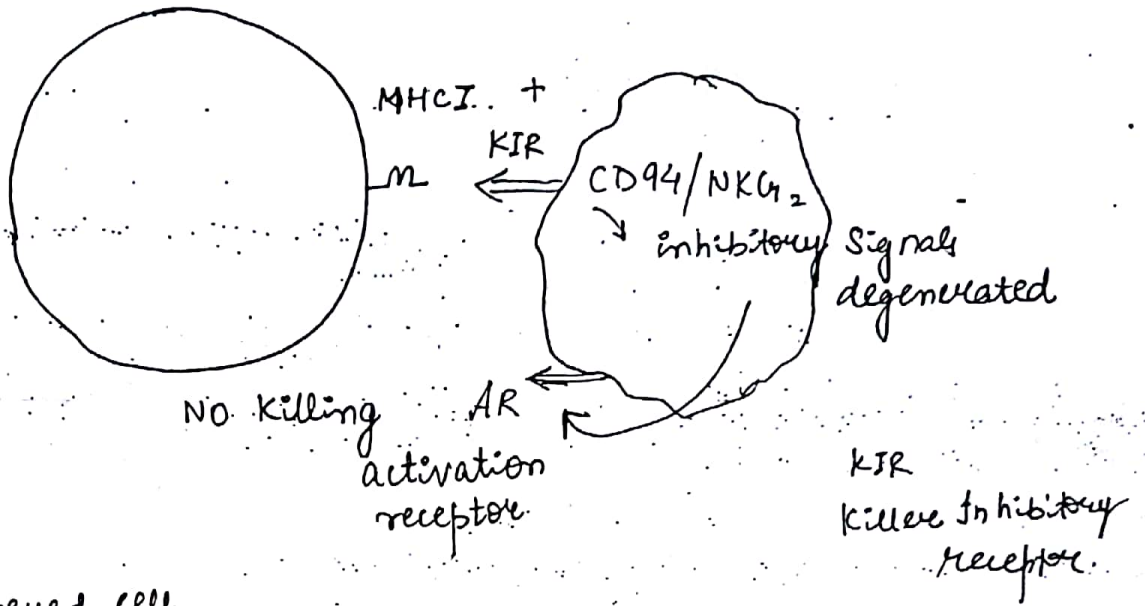 MHCI. +
KIR
CD94/NKG2
inhibitory signals
degenerated
No Killing
AR
activation
receptor.
KIR
Killer Inhibitory
receptor.
cell